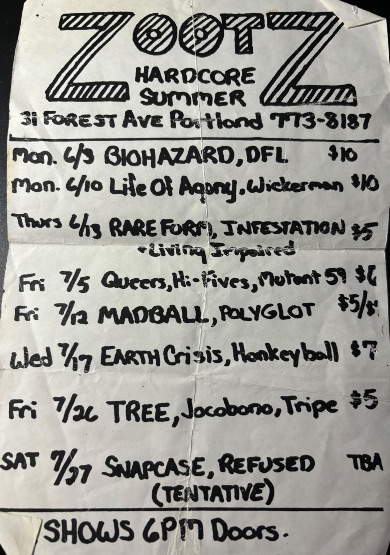 ZOOTZ
HARDCORE
SUMMER
31 FOREST AVE Portland 773-8187
Mon. 6/3 BIOHAZARD, DFL $10
Mon. 6/10 Life Of Agony, Wickerman $10
Thurs 6/13 RARE FORM, INFESTATION $5
+Living Impaired
Fri 7/5 Queers, Hi-Fives, Mutant 59 $6
Fri 7/12 MADBALL, POLYGLOT $5/8
Wed 7/17 EARTH Crisis, Honkeyball $7
Fri 7/26 TREE, Jacobono, Tripe $5
SAT 7/27 SNAPCASE, REFUSED TBA
(TENTATIVE)
SHOWS 6PM Doors.